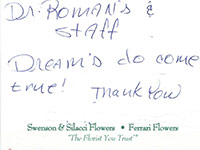 Dr. Roman's &
Staff
Dream's do come
true! Thank You
Swenson & Silacci Flowers • Ferrari Flowers
"The Florist You Trust"